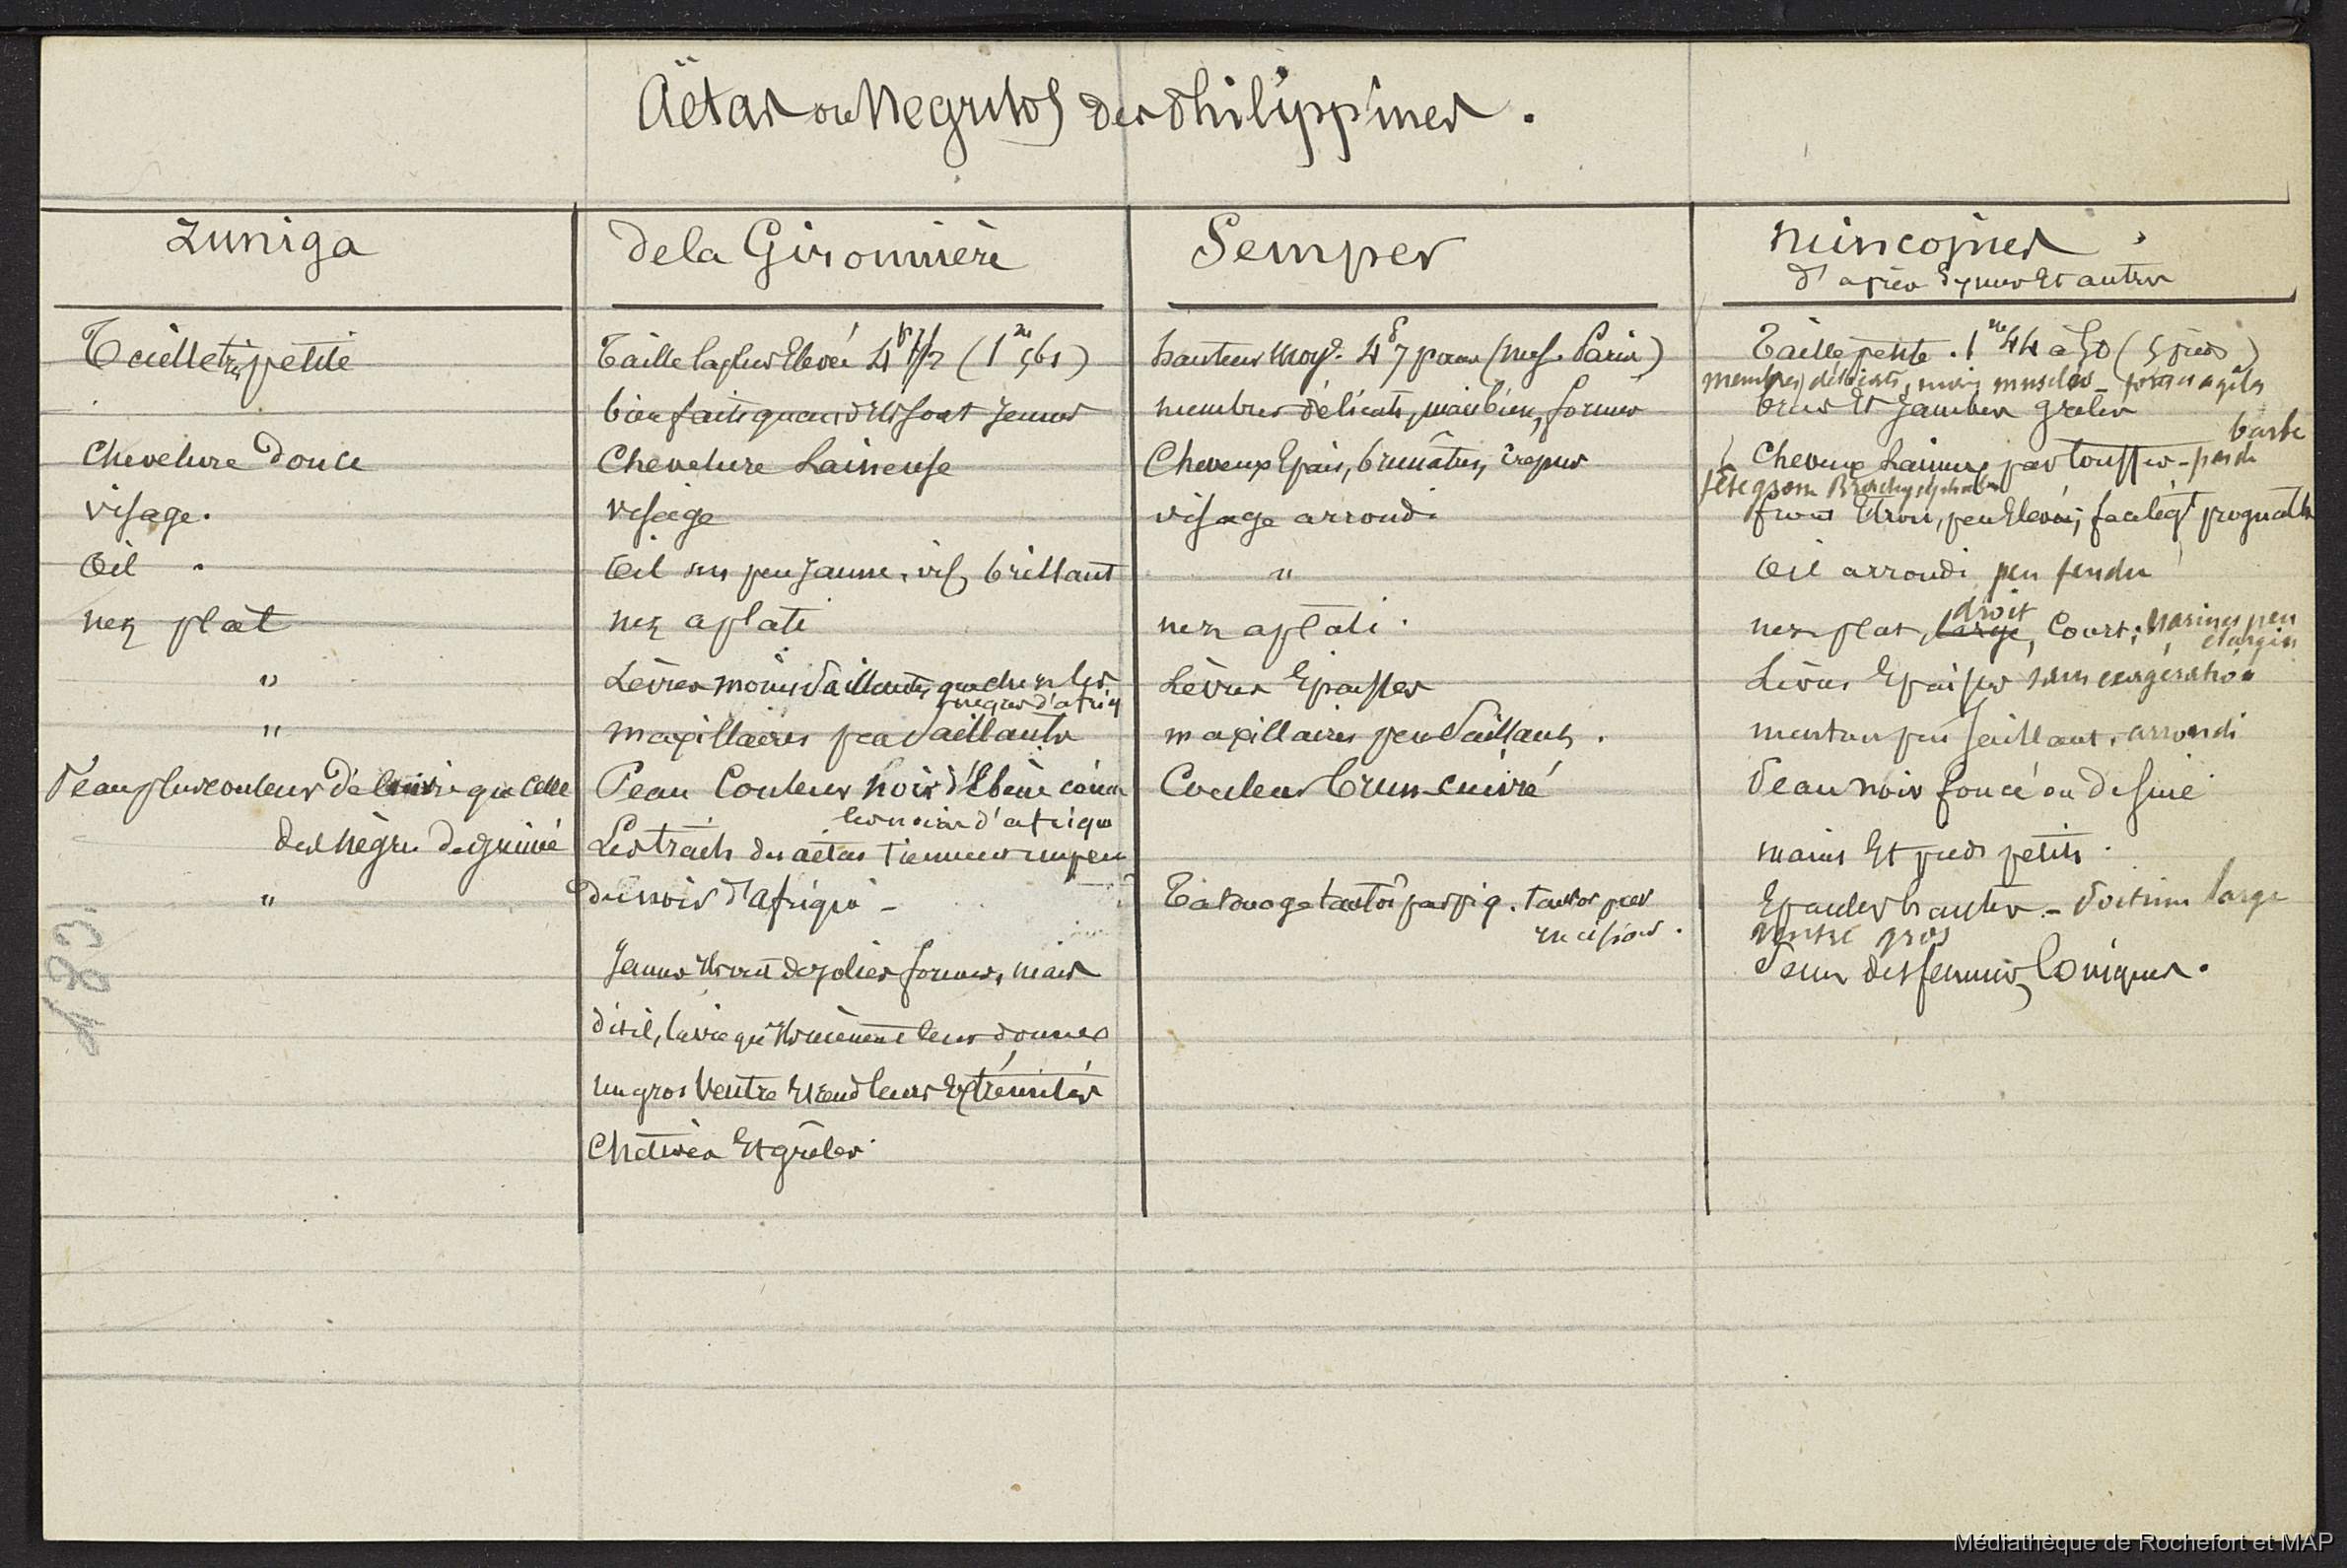 Aëtas ou Negritos des Philippines.
Zuniga
Taille très petite
Chevelure douce
visage.
Œil "
nez plat
"
"
Peau plus couleur de cuivre que celle
des nègres de guinée
"
de la Gironnière
Taille la plus Elevée 4p 1/2 (1m,461)
bien faits quand ils sont jeunes
Chevelure Laineuse
visage
Œil un peu jaune, vif, brillant
nez aplati
Lèvres moins saillantes que chez les
nègres d'afriq
maxillaires peu saillants
Peau Couleur noir d'Ebène comme
les noirs d'afrique
Les traits des aëtas tiennent un peu
du noir d'afrique -
Jeunes ils ont de jolies formes, mais
dit il, la vie qu'ils mènent leur donnes
un gros Ventre et rend leurs Extrémités
Chétives Et grêles.
Semper
hauteur moy. 4p 7 pouces (mes. Paris)
membres délicats, mais bien formés
Cheveux Epais, brunâtres, crépus
visage arrondi
"
nez aplati.
Lèvres Epaisses
maxillaires peu saillants.
Couleur brun-cuivré
Tatouage tantôt par piq. tantôt par
incisions.
mincopies
d'après Symes Et autres
Taille petite. 1m 44 à 50 (5 pieds)
membres délicats, mais musclés - forts et agiles
bras Et Jambes grêles
barbe
Cheveux Laineux par touffes - pas de
tête grosse Brachycéphale
front Etroit, peu Elevé; face légt prognathe
Œil arrondi peu fendu
droit
nez plat, large, Court; narines peu
élargies
Lèvres Epaisses sans exagération
menton peu saillant, arrondi
Peau noir foncé ou de suie
mains Et pieds petits.
Epaules hautes - Poitrine large
ventre gros
Seins des femmes, Coniques.
183
Médiathèque de Rochefort et MAP